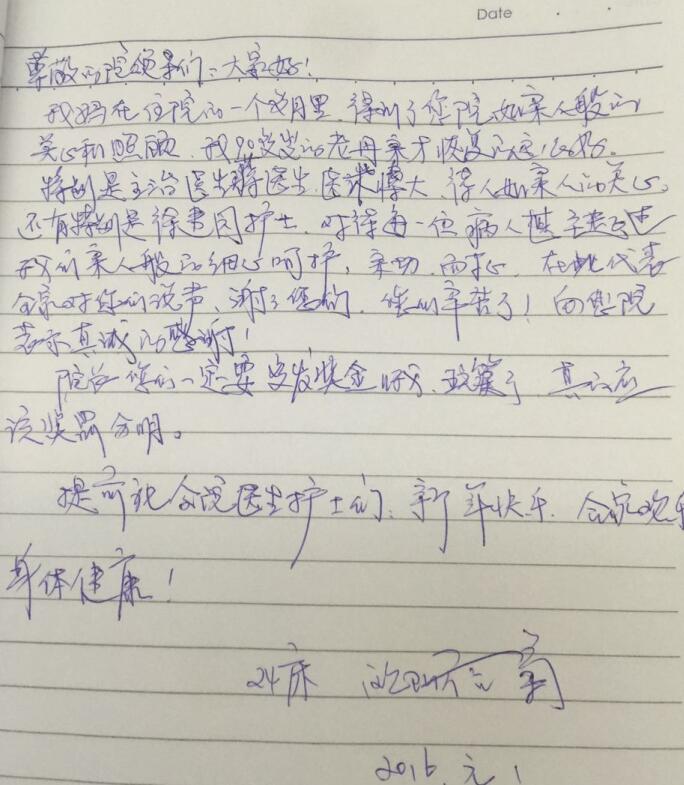 Date
尊敬的院领导们：大家好！
我妈在住院的一个多月里，得到了您院如亲人般的
关心和照顾，我90多岁的老母亲才恢复的这么好。
特别是主治医生蒋医生，医术博大，待人如亲人的关心，
还有特别是徐建国护士，对待每一位病人
我们亲人般的细心呵护，亲切，而热心，在此代表
全家对你们说声，谢谢您们，您们辛苦了！向您院
表示真诚的感谢！
院长你们一定要多发奖金，真心应
该奖罚分明。
提前祝全院医生护士们，新年快乐，合家欢乐
身体健康！
24床
2016.元.1